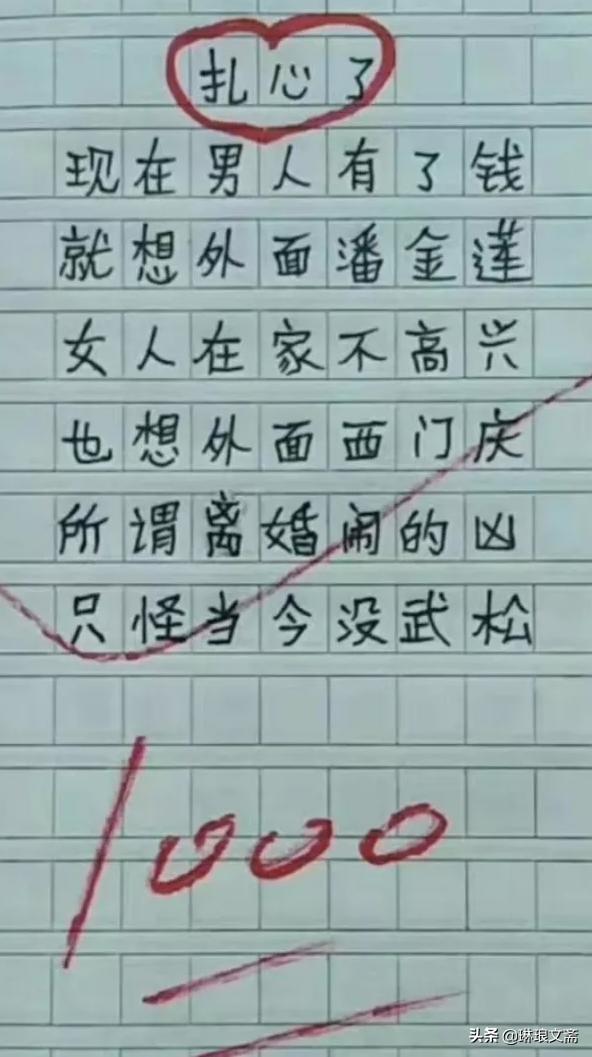 扎心了
现在男人有了钱
就想外面潘金莲
女人在家不高兴
也想外面西门庆
所谓离婚闹的凶
只怪当今没武松
1000
头条 @琳琅文斋